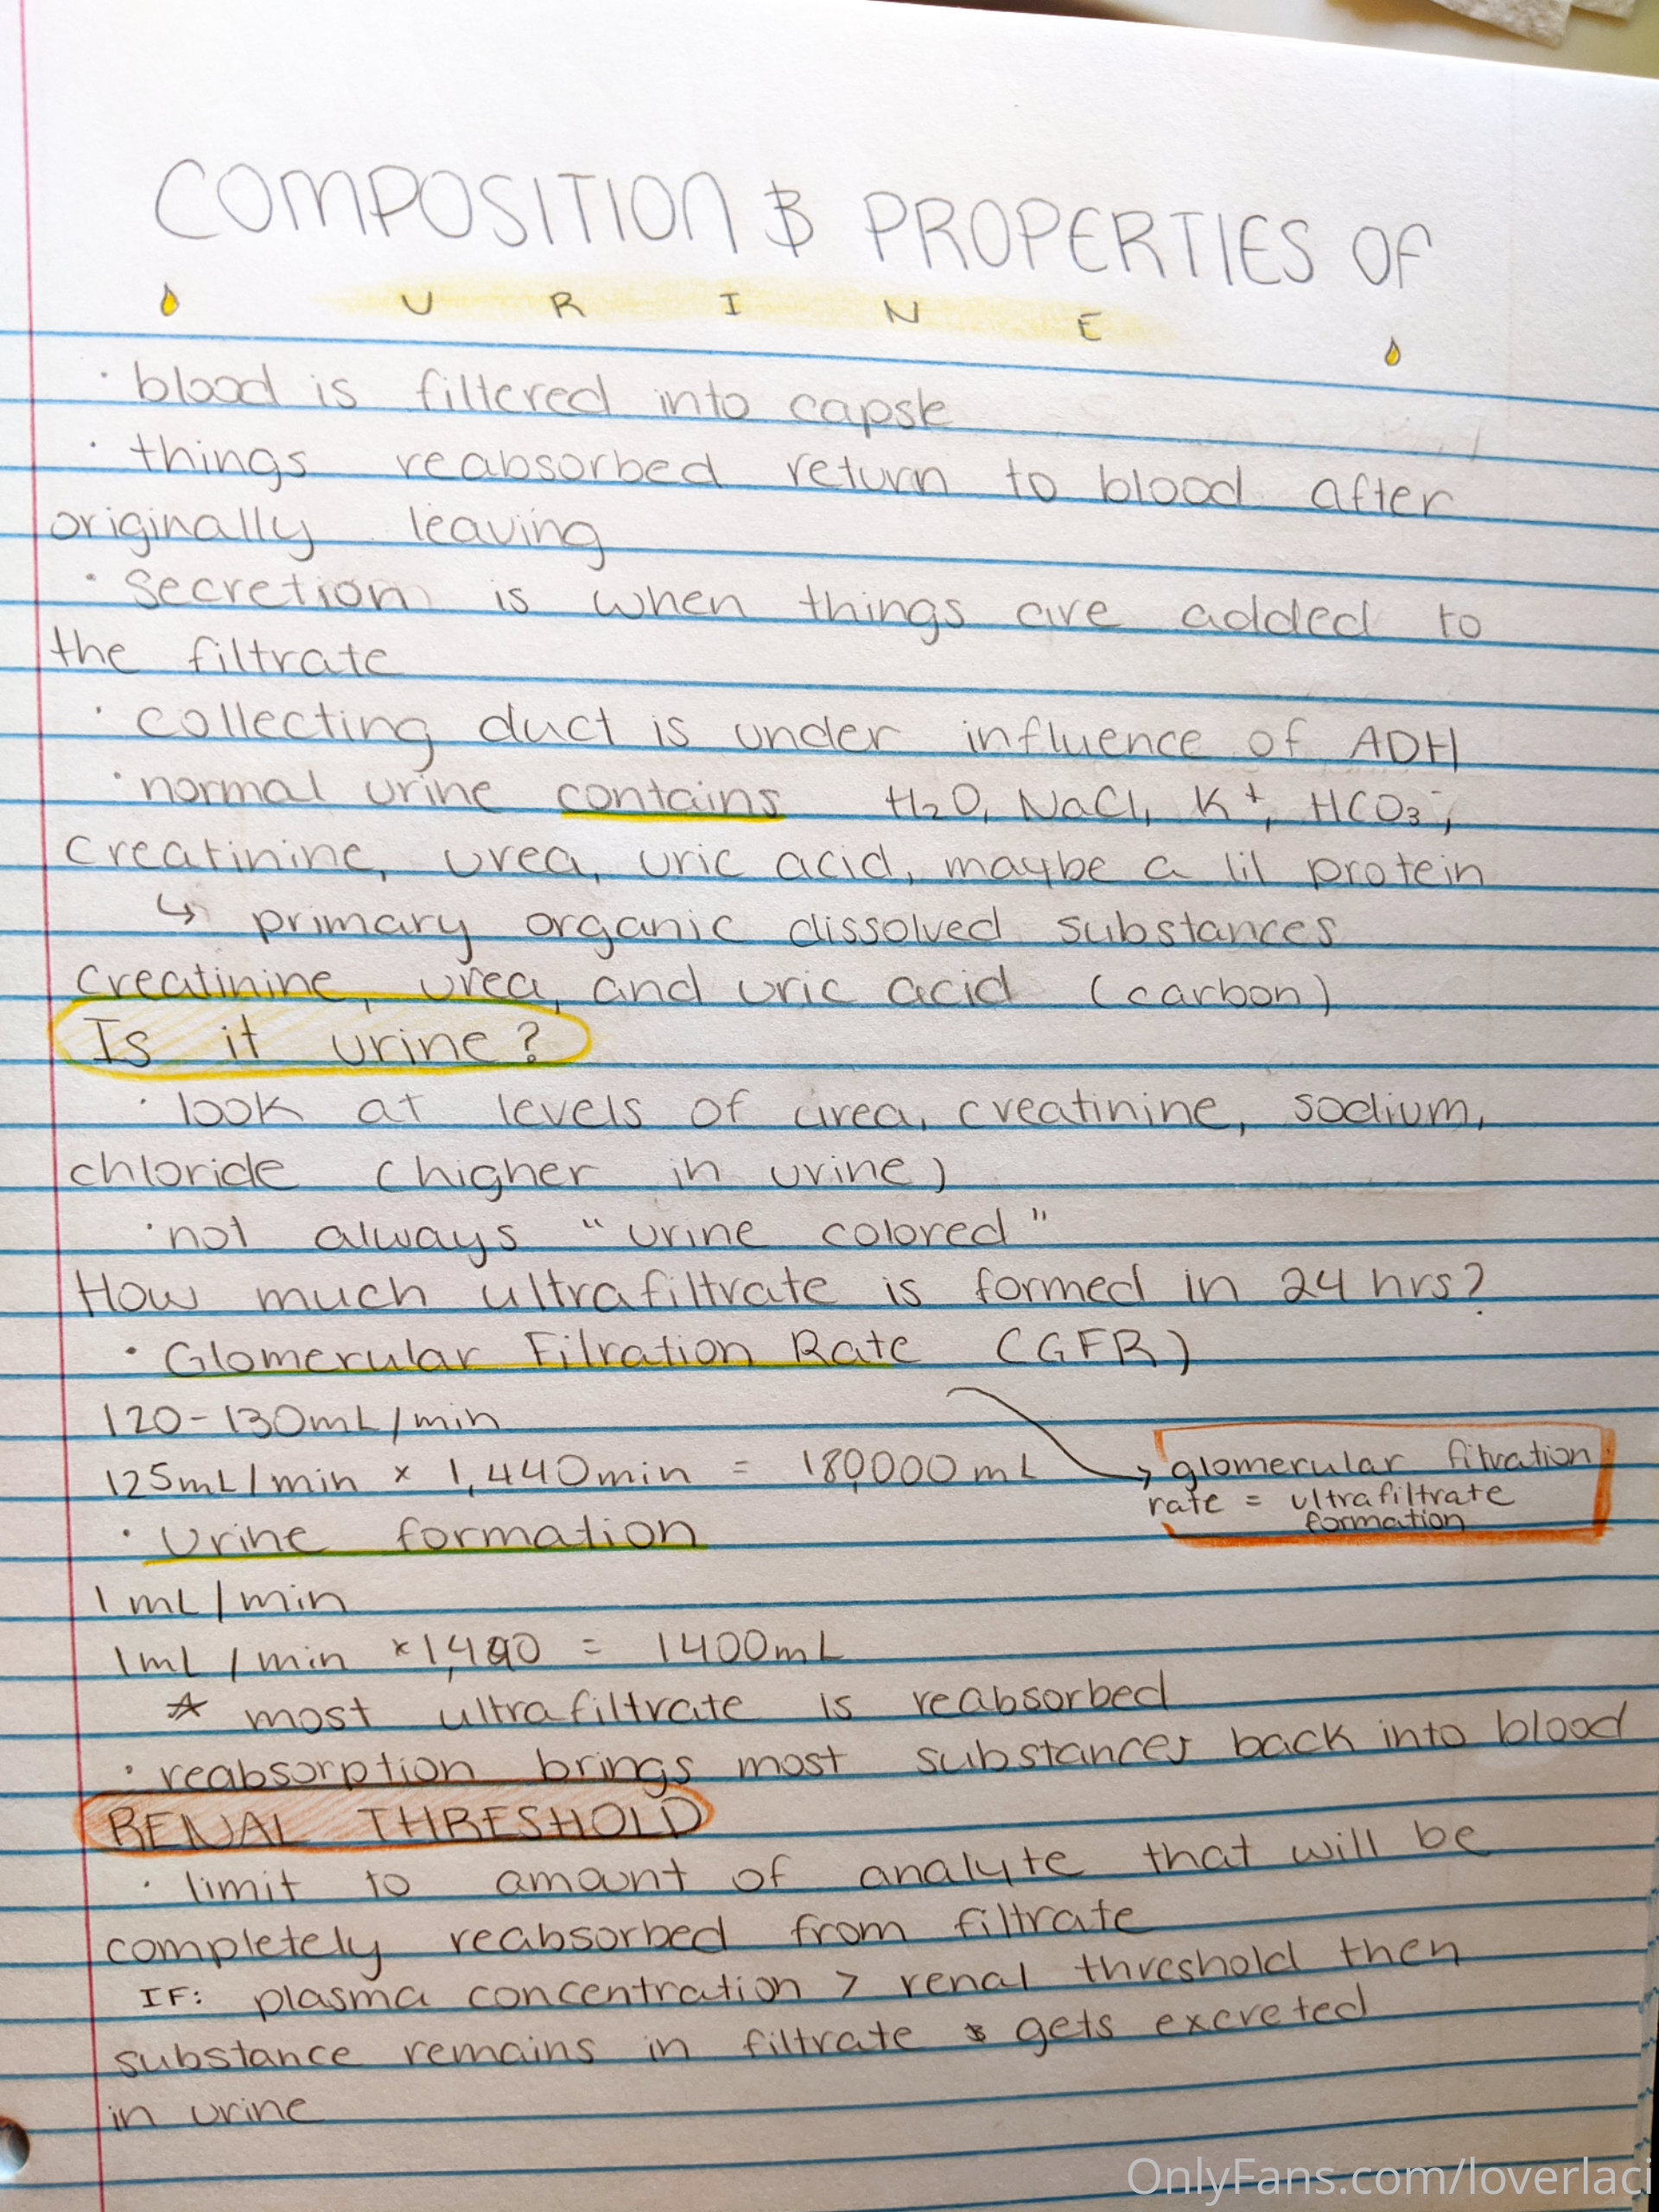 COMPOSITION & PROPERTIES OF
URINE
· blood is filtered into capsle
· things reabsorbed return to blood after
originally leaving
· secretion is when things are added to
the filtrate
· collecting duct is under influence of ADH
· normal urine contains H₂O, NaCl, K⁺, HCO₃⁻,
creatinine, urea, uric acid, maybe a lil protein
↳ primary organic dissolved substances
creatinine, urea, and uric acid (carbon)
Is it urine?
· look at levels of urea, creatinine, sodium,
chloride (higher in urine)
· not always "urine colored"
How much ultrafiltrate is formed in 24 hrs?
· Glomerular Filration Rate (GFR)
120-130mL/min
125mL/min × 1,440min = 180,000mL
→ glomerular filtration
rate = ultrafiltrate
formation
· Urine formation
1mL/min
1mL/min ×1,440 = 1400mL
☆ most ultrafiltrate is reabsorbed
· reabsorption brings most substances back into blood
RENAL THRESHOLD
· limit to amount of analyte that will be
completely reabsorbed from filtrate
IF: plasma concentration > renal threshold then
substance remains in filtrate & gets excreted
in urine
OnlyFans.com/loverlaci